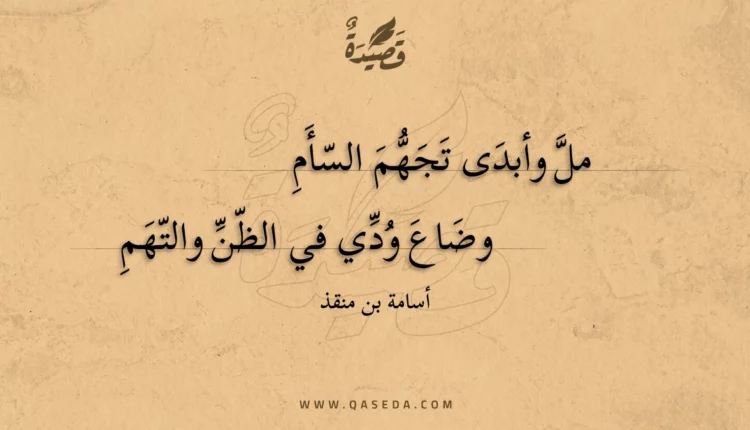 قَصِيْدَةٌ
ملَّ وأبدَى تَجَهُّمَ السّأَمِ
وضَاعَ وُدِّي في الظّنِّ والتّهَمِ
أسامة بن منقذ
WWW.QASEDA.COM